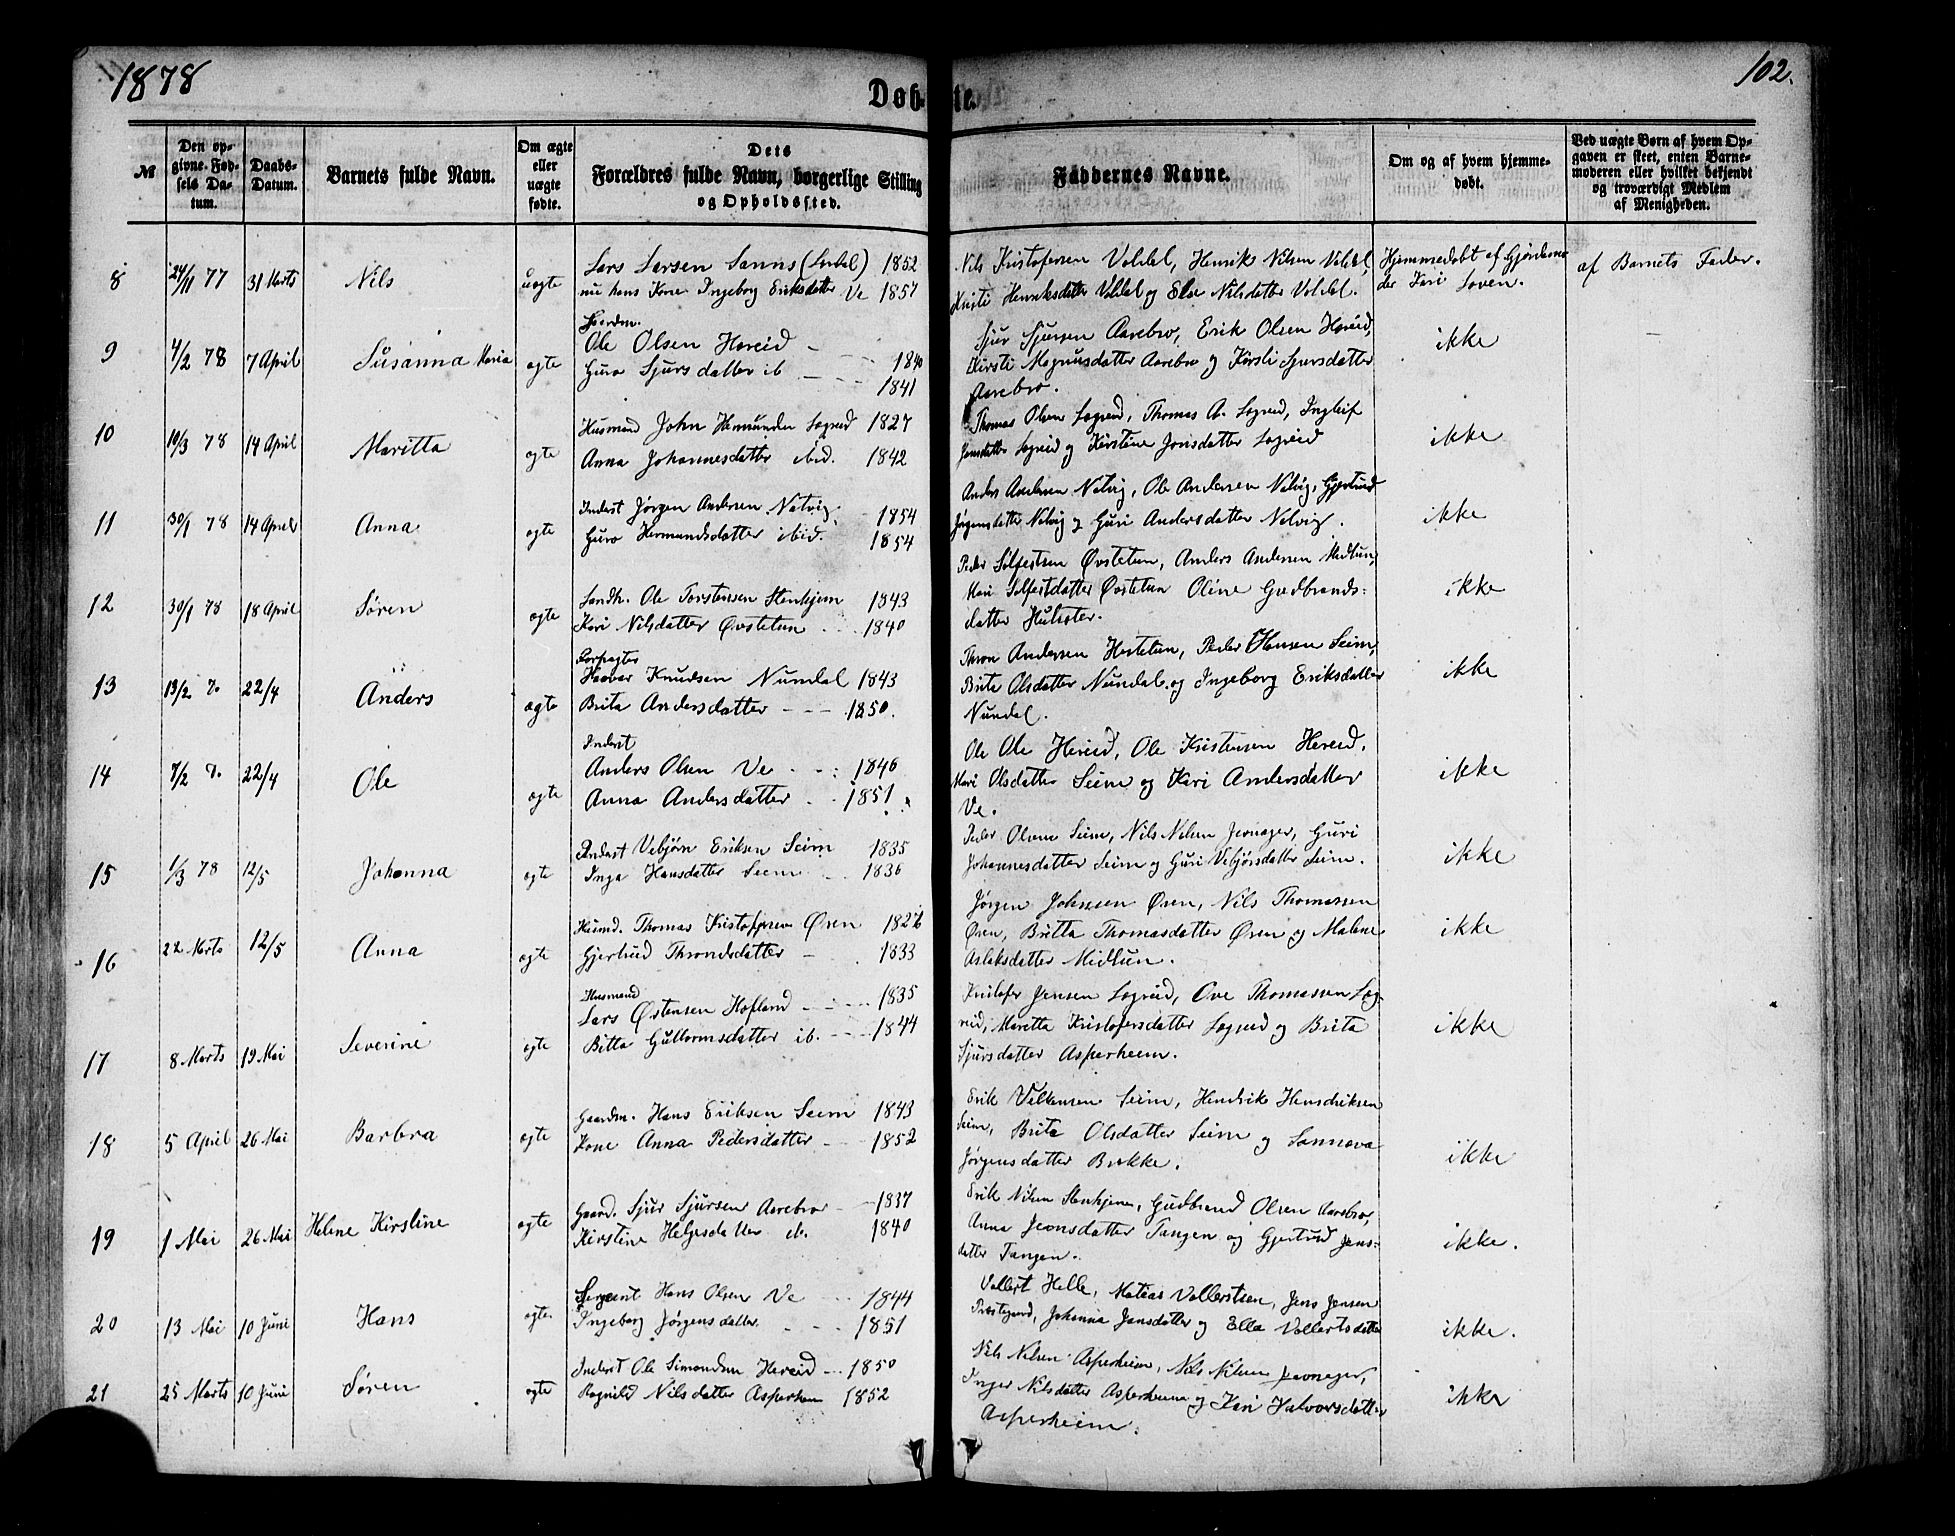 1878
102.
Døbte.
№
Den opgivne Fødsels Datum.
Daabs-Datum.
Barnets fulde Navn.
Om ægte eller uægte fødte.
Dets Forældres fulde Navn, borgerlige Stilling og Opholdssted.
Faddernes Navne.
Om og af hvem hjemmedøbt.
Ved uægte Børn af hvem Opgaven er skeet, enten Barnemoderen eller hvilket bekjendt og troværdigt Medlem af Menigheden.
8 24/11 77 31 Marts Nils uægte
Lars Larsen Sanns 1852
nu hans Kone Ingeborg Eriksdatter Ve 1857
Nils Kristofersen Voldal, Henriks Nilsen Voldal,
Kristi Henriksdatter Voldal og Else Nilsdatter Voldal.
Hjemmedøbt af
Kari Loven.
af Barnets Fader.
9 4/2 78 7 April Susanna Maria ægte
Gaardm.
Ole Olsen Hereid 1840
Guro Sjursdatter ib 1841
Sjur Sjursen Aarebro, Erik Olsen Hereid,
Kirsti Magnusdatter Aarebro og Kirsti Sjursdatter
Aarebro.
ikke
10 19/3 78 14 April Maritta ægte
Husmand John Hermundsen Lægreid 1827
Anna Johannesdatter ibid. 1842
Thomas Olsen Lægreid, Thomas A. Lægreid, Ingleif
Jonsdatter Lægreid og Kirstine Jonsdatter Lægreid
ikke
11 30/1 78 14 April Anna ægte
Inderst Jørgen Andersen Natvig 1854
Guro Hermundsdatter ibid. 1854
Anders Andersen Natvig, Ole Andersen Natvig, Gjertrud
Jørgensdatter Natvig og Guri Andersdatter Natvig.
ikke
12 30/1 78 18 April Søren ægte
Landh. Ole Torstensen Stenhjem 1843
Kari Nilsdatter Øvstetun 1840
Peder Solfestsen Øvstetun, Anders Andersen Midtun,
Mari Solfestdatter Øvstetun Oline Gudbrands-
datter
ikke
13 13/2 22/4 Anders ægte
Forpagter
Haavar Knudsen Nundal 1843
Brita Andersdatter 1850.
Thron Andersen Hestetun, Peder Hansen Seim,
Brita Olsdatter Nundal og Ingeborg Eriksdatter
Nundal.
ikke
14 7/2 22/4 Ole ægte
Inderst
Anders Olsen Ve 1846
Anna Andersdatter 1851.
Ole Ole Hereid, Ole Kristensen Hereid,
Mari Olsdatter Seim og Kari Andersdatter
Ve.
ikke
15 1/3 78 12/5 Johanna ægte
Inderst Vebjørn Eriksen Seim 1835
Inga Hansdatter Seim 1836
Peder Olsen Seim, Nils Nilsen Jevnager, Guri
Johannesdatter Seim og Guri Vebjørsdatter Seim.
ikke
16 22 Marts 12/5 Anna ægte
Husmd. Thomas Kristoffersen Øren
Gjertrud Throndsdatter 1833
Jørgen Johnsen Øren, Nils Thomassen
Øren, Britta Thomasdatter Øren og Malene
Aslaksdatter Midtun.
ikke
17 8 Marts 19 Mai Severine ægte
Husmand
Lars Østensen Hofland 1835
Bitta Guttormsdatter ib. 1844
Kristofer Jensen Lægreid, Ove Thomassen Læg-
reid, Maretta Kristofersdatter Lægreid og Brita
Sjursdatter Asperheim.
ikke
18 5 April 26 Mai Barbra ægte
Gaardm. Hans Eriksen Seim 1843
Kone Anna Pedersdatter 1852
Erik Seim, Hendrik Hendriksen
Seim, Brita Olsdatter Seim og Sonneva
Jørgensdatter Brekke.
ikke
19 1 Mai 26 Mai Helene Kirstine ægte
Gaard. Sjur Sjursen Aarebro 1837
Kirstine Helgesdatter ib. 1840
Erik Nilsen Stenhjem, Gudbrand Olsen Aarebro,
Anna Jensdatter Tangen og Gjertrud Jens-
datter Tangen.
ikke.
20 13 Mai 10 Juni Hans ægte
Sergeant Hans Olsen Ve 1844
Ingeborg Jørgensdatter 1851
Vollert Helle, Matias Vollertsen, Jens Jensen
Prestegard, Johanna Jensdatter og Ella Vollertsdatter
ikke.
21 25 Marts 10 Juni Søren ægte
Inderst Ole Simondsen Hereid 1850
Ragnild Nilsdatter Asperheim 1852
Nils Nilsen Asperheim, Nils Nilsen Jevnager,
Inger Nilsdatter Asperheim og Kari Halvorsdatter
Asperheim.
ikke